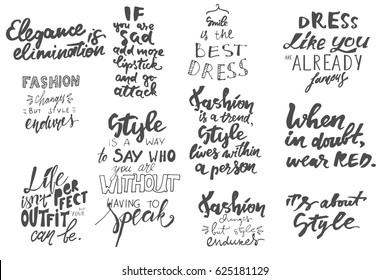 Elegance is
elimination
FASHION
changes
BUT STYLE
endures
Life
isn't PERFECT
BUT YOUR
OUTFIT
can be.
IF
you are
Sad
add more
lipstick
and go
attack
Style
IS A WAY
TO SAY WHO
you are
WITHOUT
HAVING TO
Speak
Smile
is the
BEST
DRESS
Fashion
is a trend,
Style
lives within
a person
Fashion
changes
but style
endures
DRESS
Like you
ARE ALREADY
famous
When
in doubt,
wear RED.
it's about
Style
shutterstock.com · 625181129